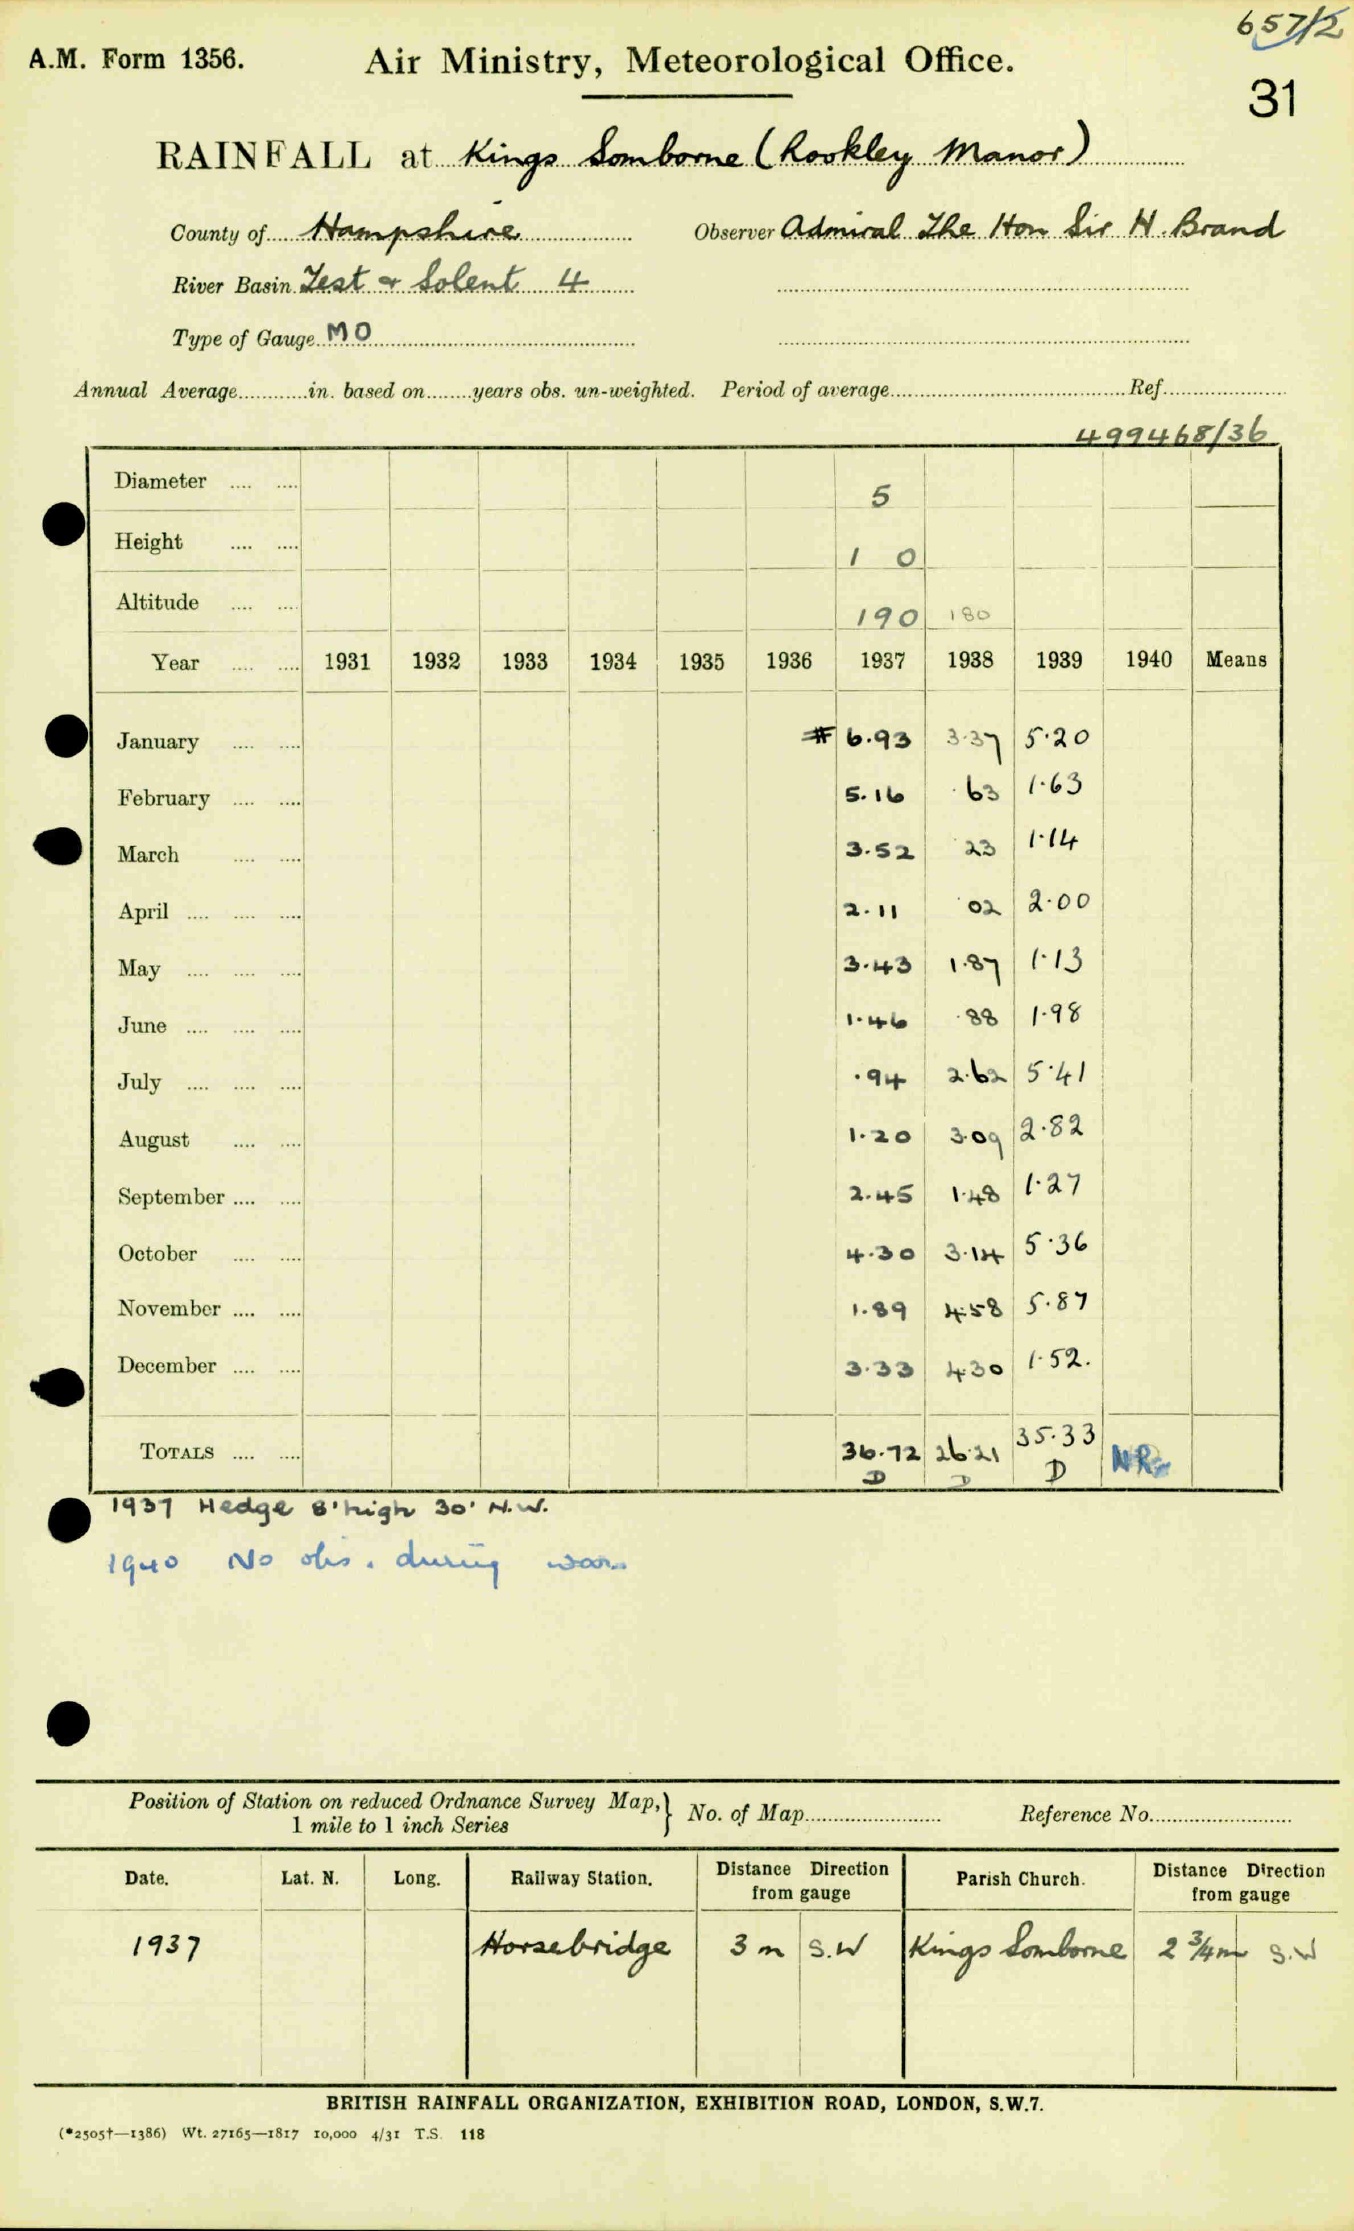 657/2
A.M. Form 1356. Air Ministry, Meteorological Office.
31
RAINFALL at Kings Somborne (Rookley Manor)
County of Hampshire Observer Admiral The Hon Sir H. Brand
River Basin Test & Solent 4
Type of Gauge MO
Annual Average in. based on years obs. un-weighted. Period of average Ref.
499468/36
Diameter 5
Height 1 0
Altitude 190 180
Year 1931 1932 1933 1934 1935 1936 1937 1938 1939 1940 Means
January # 6.93 3.37 5.20
February 5.16 .63 1.63
March 3.52 .23 1.14
April 2.11 .02 2.00
May 3.43 1.87 1.13
June 1.46 .88 1.98
July .94 2.62 5.41
August 1.20 3.09 2.82
September 2.45 1.48 1.27
October 4.30 3.14 5.36
November 1.89 4.58 5.87
December 3.33 4.30 1.52.
TOTALS 36.72 26.21 35.33 NR
D D D
1937 Hedge 8' high 30' N.W.
1940 No obs. during war
Position of Station on reduced Ordnance Survey Map, } No. of Map Reference No.
1 mile to 1 inch Series
Date. Lat. N. Long. Railway Station. Distance Direction from gauge Parish Church. Distance Direction from gauge
1937 Horsebridge 3 m S.W Kings Somborne 2 3/4 m S.W
BRITISH RAINFALL ORGANIZATION, EXHIBITION ROAD, LONDON, S.W.7.
(*2505†—1386) Wt. 27165—1817 10,000 4/31 T.S. 118